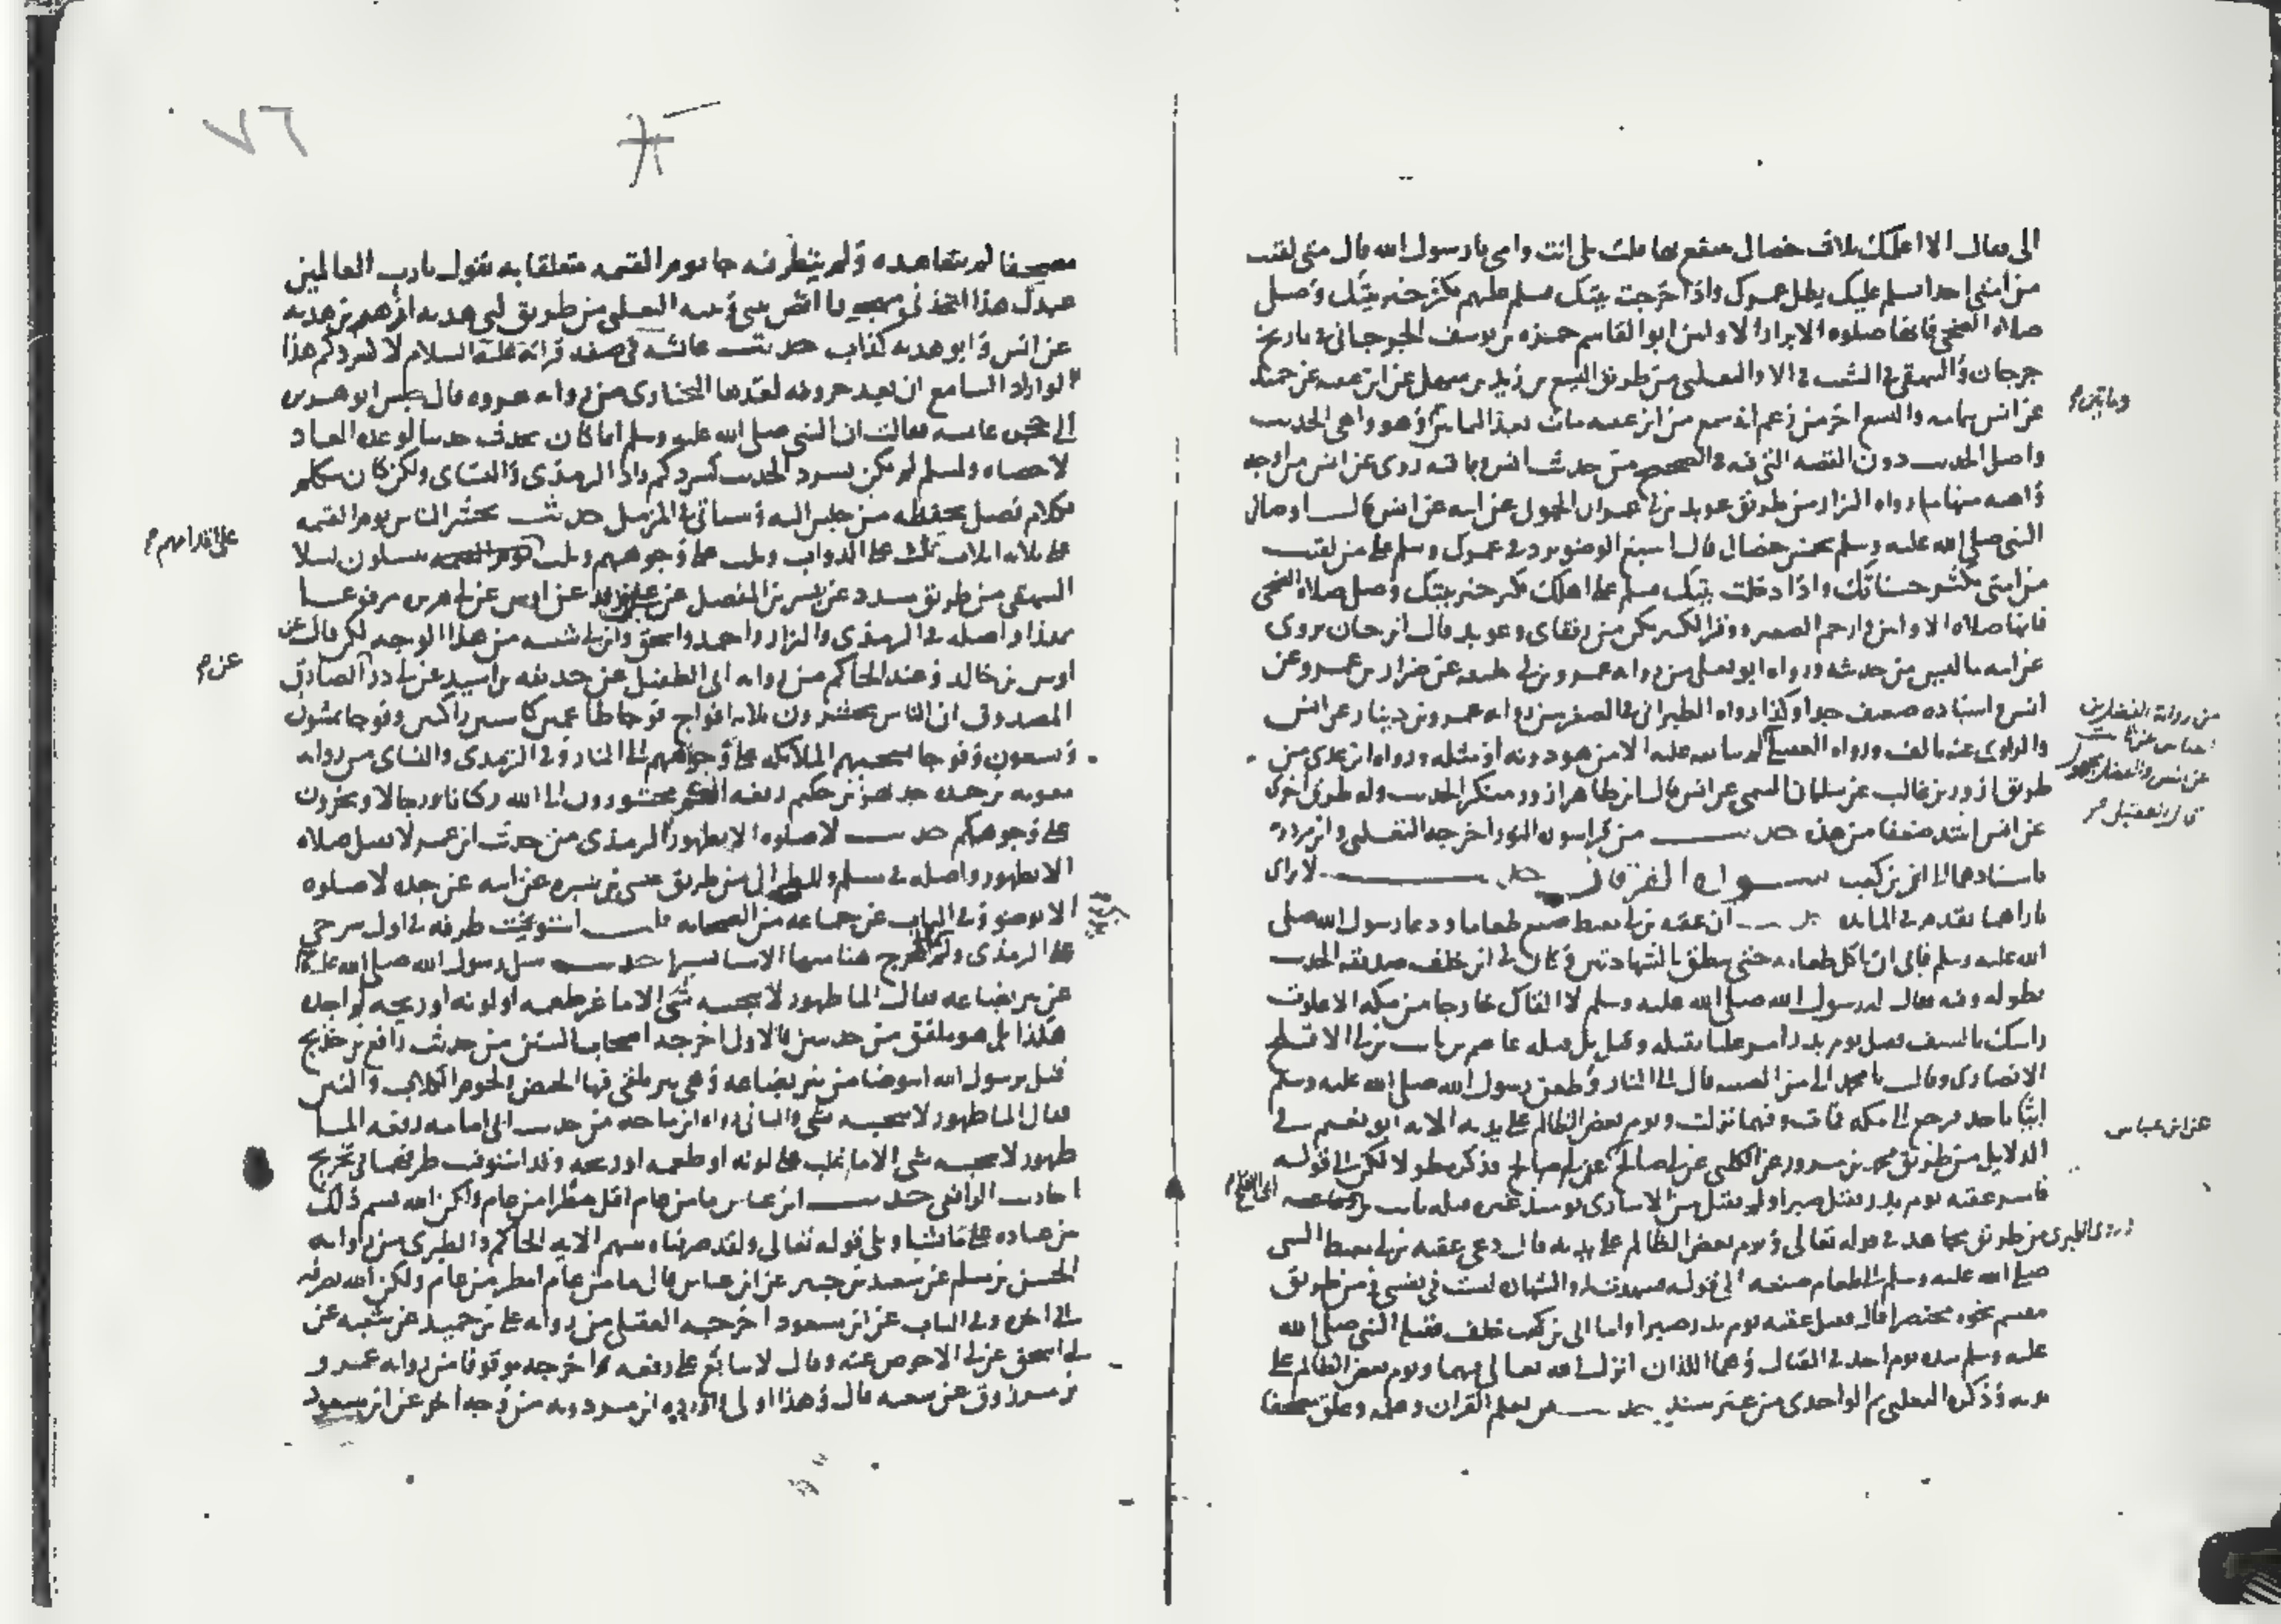 الى فقال الا اعلمك ثلاث خصال تنتفع بها قلت بلى بابى انت وامى يا رسول الله قال متى لقيت
من امتى احدا فسلم عليك يطل عمرك واذا خرجت بيتك فسلم عليهم يكثر خير بيتك وصل
صلاة الضحى فانها صلوه الابرار الاوابين ابو القاسم حمزه بن يوسف الجرجانى فى تاريخ
جرجان والبيهقى فى الشعب فى الا والثعلبى من طريق اليسع بن زيد بن سهل عن ابن عيينه عن حميد
عن انس واليسع اخر من زعم انه سمع من ابن عيينه مات بعد الماتين وهو واهى الحديث
واصل الحديث دون القصه التى فيه فى الصحيح من حديث انس وباقيه روى عن انس من اوجه
واهيه منها ما رواه البزار من طريق عويد بن ابى عمران الجونى عن ابيه عن انس قال اوصانى
النبى صلى الله عليه وسلم بخمس خصال قال اسبغ الوضو يزد فى عمرك وسلم على من لقيت
من امتى تكثر حسناتك واذا دخلت بيتك فسلم على اهلك يكثر خير بيتك وصل صلاة الضحى
فانها صلاة الاوابين وارحم الصغير ووقر الكبير تكن من رفقاى وعويد قال ابن حبان يروى
عن ابيه ما ليس من حديثه ورواه ابو يعلى من رواية عمرو بن ابى خليفه عن ضرار بن عمرو عن
انس واسناده ضعيف جدا وكذا رواه الطبرانى فى الصغير من رواية عمرو بن دينار عن انس
والراوى عنه تالف ورواه العقيلى لم يتابعه عليه الا من هو دونه او مثله ورواه ابن عدى من
طريق ازور بن غالب عن سليمان التيمى عن انس قال ابن طاهر ازور منكر الحديث وله طريق اخرى
عن انس اشد ضعفا من هذه حديث من قرا سوره النور اخرجه الثعلبى وابن مردويه
باسنادهما الى ابى بن كعب سورة الفرقان حديث لا تراى
ناراهما تقدم فى المائده حديث ان عقبه بن ابى معيط صنع طعاما ودعا رسول الله صلى
الله عليه وسلم فابى ان ياكل طعامه حتى ينطق بالشهادتين وكان ابى بن خلف صديقه الحديث
بطوله وفيه فقال له رسول الله صلى الله عليه وسلم لا القاك خارجا من مكه الا علوت
راسك بالسيف فقتل يوم بدر امر عليا بقتله وقيل بل قتله عاصم بن ثابت بن ابى الاقلح
الانصارى وقال يا محمد الى من الصبيه قال الى النار وطعن رسول الله صلى الله عليه وسلم
ابيا باحد فرجع الى مكه فمات وفيها نزلت ويوم يعض الظالم على يديه الايه ابو نعيم فى
الدلايل من طريق محمد بن مروان عن الكلبى عن ابى صالح فذكره مطولا لكن الى قوله
عن ابن عباس
فاسر عقبه يوم بدر فقتل صبرا ولم يقتل من الاسارى يومئذ غيره قتله ثابت بن
وروى الطبرى من طريق مجاهد فى قوله تعالى ويوم يعض الظالم على يديه قال دعى عقبه بن ابى معيط النبى
صلى الله عليه وسلم الى طعام صنعه الى قوله فشهد والشهادة ليست فى نفسى ومن طريق
مقسم نحوه مختصرا قال فقتل عقبه يوم بدر صبرا واما ابى بن خلف فقتله النبى صلى الله
عليه وسلم بيده يوم احد فى القتال وهما اللذان انزل الله تعالى فيهما ويوم يعض الظالم على
يديه وذكره الثعلبى ثم الواحدى من غير سند حديث من تعلم القران وعلمه وعلق مصحفا
٧٦
مصحفا لم يتعاهده ولم ينظر فيه جا يوم القيمه متعلقا به يقول يا رب العالمين
عبدك هذا اتخذنى مهجورا اقض بينى وبينه الثعلبى من طريق ابى هدبه ابرهيم بن هدبه
عن انس وابو هدبه كذاب حديث عائشه فى صفه قراته عليه السلام لا كسردكم هذا
لو اراد السامع ان يعد حروفه لعدها البخارى من رواية عروه قال جلس ابو هريره
الى جنب عائشه فقالت ان النبى صلى الله عليه وسلم انما كان يحدث حديثا لو عده العاد
لاحصاه ولمسلم لم يكن يسرد الحديث كسردكم واد الترمذى والنساى ولكن كان يتكلم
بكلام فصل يحفظه من جلس اليه وسياتى فى المزمل حديث يحشر الناس يوم القيمه
على ثلاثه اثلاث ثلث على الدواب وثلث على وجوههم وثلث على اقدامهم ينسلون نسلا
البيهقى من طريق مسدد عن بشر بن المفضل عن على بن زيد عن اوس عن ابى هريره مرفوعا
بهذا واصله فى الترمذى والبزار واحمد واسحق وابن ابى شيبه من هذا الوجه لكن قال عن
اوس بن خالد وعند الحاكم من رواية ابى الطفيل عن حذيفه بن اسيد عن ابى ذر الصادق
المصدوق ان الناس يحشرون ثلاثه افواج فوجا طاعمين كاسين راكبين وفوجا يمشون
ويسعون وفوجا تسحبهم الملائكه على وجوههم الى النار وفى الترمذى والنساى من رواية
معويه بن حيده جد بهز بن حكيم رفعه انكم محشورون الى الله ركبانا ورجالا وتجرون
على وجوهكم حديث لا صلوه الا بطهور الترمذى من حديث ابن عمر لا تقبل صلاه
الا بطهور واصله فى مسلم وللطبرانى من طريق عيسى بن سبره عن ابيه عن جده لا صلوه
الا بوضو وفى الباب عن جماعه من الصحابه قلت استوعبت طرقه فى اول شرحى
على الترمذى حديث سئل رسول الله صلى الله عليه وسلم
عن بير بضاعه فقال الما طهور لا ينجسه شى الا ما غير طعمه او لونه او ريحه لم اجده
هكذا بل هو ملفق من حديثين فالاول اخرجه اصحاب السنن من حديث رافع بن خديج
قيل يرسول الله اتتوضا من بير بضاعه وهى بير يلقى فيها الحيض ولحوم الكلاب والنتن
فقال الما طهور لا ينجسه شى والثانى رواه ابن ماجه من حديث ابى امامه رفعه الما
طهور لا ينجسه شى الا ما غلب على لونه او طعمه او ريحه وقد استوفيت طرقهما فى تخريج
احاديث الرافعى حديث ابن عباس ما من عام اقل مطرا من عام ولكن الله قسم ذلك
بين عباده على ما شا وتلى قوله تعالى ولقد صرفناه بينهم الايه الحاكم والطبرى من رواية
الحسن بن مسلم عن سعيد بن جبير عن ابن عباس قال ما من عام امطر من عام ولكن الله يصرفه
الى اخره وفى الباب عن ابن مسعود اخرجه العقيلى من رواية على بن حميد عن شعبه عن
ابى اسحق عن ابى الاحوص عنه وقال لا يتابع على رفعه ثم اخرجه موقوفا من رواية عمرو
بن مرزوق عن شعبه قال وهذا اولى واورده ابن مردويه من وجه اخر عن ابن مسعود